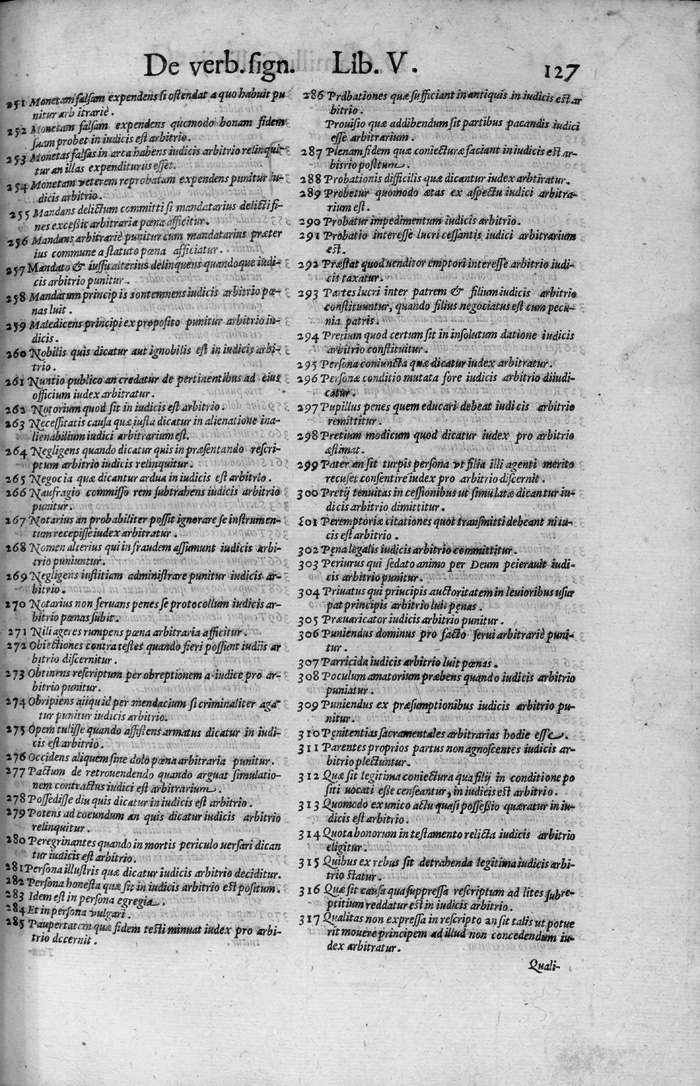 De verb. sign. Lib. V. 127
251 Monetam falsam expendens si ostendat a quo habuit pu
nitur arbitrarie.
252 Monetam falsam expendens quomodo bonam fidem
suam probet in iudicis est arbitrio.
253 Monetas falsas in arca habens iudicis arbitrio relinqui-
tur an illas expenditurus esset.
254 Monetam veterem reprobatam expendens punitur iu-
dicis arbitrio.
255 Mandans delictum committi si mandatarius delicti fi-
nes excessit arbitraria pœna afficitur.
256 Mandans arbitrariè punitur cum mandatarius præter
ius commune a statuto pœna afficiatur.
257 Mandato & iussu alterius delinquens quandoque iudi-
cis arbitrio punitur.
258 Mandatum principis contemnens iudicis arbitrio pœ-
nas luit.
259 Maledicens principi ex proposito punitur arbitrio iu-
dicis.
260 Nobilis quis dicatur aut ignobilis est in iudicis arbi-
trio.
261 Nuntio publico an credatur de pertinentibus ad eius
officium iudex arbitratur.
262 Notorium quod sit in iudicis est arbitrio.
263 Necessitatis causa quæ iusta dicatur in alienatione ina-
lienabilium iudici arbitrarium est.
264 Negligens quando dicatur quis in præsentando rescri-
ptum arbitrio iudicis relinquitur.
265 Negocia quæ dicantur ardua in iudicis est arbitrio.
266 Naufragio commisso rem subtrahens iudicis arbitrio
punitur.
267 Notarius an probabiliter possit ignorare se instrumen-
tum recepisse iudex arbitratur.
268 Nomen alterius qui in fraudem assumunt iudicis arbi-
trio puniuntur.
269 Negligens iustitiam administrare punitur iudicis ar-
bitrio.
270 Notarius non seruans penes se protocollum iudicis ar-
bitrio pœnas subit.
271 Nili ageres rumpens pœna arbitraria afficitur.
272 Obiectiones contra testes quando fieri possunt iudiis ar
bitrio discernitur.
273 Obtinens rescriptum per obreptionem a iudice pro ar-
bitrio punitur.
274 Obripiens aliquid per mendacium si criminaliter aga
tur punitur iudicis arbitrio.
275 Opem tulisse quando assistens armatus dicatur in iudi-
cis est arbitrio.
276 Occidens aliquem sine dolo pœna arbitraria punitur.
277 Pactum de retrouendendo quando arguat simulatio-
nem contractus iudici est arbitrarium.
278 Possedisse diu quis dicatur in iudicis est arbitrio.
279 Potens ad coeundum an quis dicatur iudicis arbitrio
relinquitur.
280 Peregrinantes quando in mortis periculo uersari dican
tur iudicis est arbitrio.
281 Persona illustris quæ dicatur iudicis arbitrio deciditur.
282 Persona honesta quæ sit in iudicis arbitrio est positum.
283 Idem est in persona egregia.
284 Et in persona vulgari.
285 Paupertatem quæ fidem testi minuat iudex pro arbi-
trio dccernit.
286 Prdbationes quæ sufficiant in antiquis in iudicis est ar
bitrio.
Prouisio quæ addibendum sit partibus pacandis iudici
esse arbitrarium.
287 Plenam fidem quæ coniecturæ faciant in iudicis est ar-
bitrio positum.
288 Probationis difficilis quæ dicantur iudex arbitratur.
289 Probetur quomodo ætas ex aspectu iudici arbitra-
rium est.
290 Probatur impedimentum iudicis arbitrio.
291 Probatio interesse lucri cessantis iudici arbitrarium
est.
292 Præstat quod uenditor emptori interesse arbitrio iudi-
cis taxatur.
293 Partes lucri inter patrem & filium iudicis arbitrio
constituuntur, quando filius negociatus est cum pecu-
nia patris.
294 Pretium quod certum sit in insolutum datione iudicis
arbitrio constituitur.
295 Persona coniuncta quæ dicatur iudex arbitratur.
296 Personæ conditio mutata fore iudicis arbitrio diiudi-
catur.
297 Pupillus penes quem educari debeat iudicis arbitrio
remittitur.
298 Pretium modicum quod dicatur iudex pro arbitrio
æstimat.
299 Pater an sit turpis persona vt filia illi agenti merito
recuset consentire iudex pro arbitrio discernit.
300 Pretij tenuitas in cessionibus ut simulatæ dicantur iu-
dicis arbitrio dimittitur.
301 Peremptoriæ citationes quot transmitti debeant in iu-
cis est arbitrio.
302 Pena legalis iudicis arbitrio committitur.
303 Periurus qui sedato animo per Deum peierauit iudi-
cis arbitrio punitur.
304 Priuatus qui principis auctoritatem in leuioribus usur
pat principis arbitrio luit penas.
305 Præuaricator iudicis arbitrio punitur.
306 Puniendus dominus pro facto serui arbitrariè puni-
tur.
307 Parricida iudicis arbitrio luit pœnas.
308 Poculum amatorium præbens quando iudicis arbitrio
puniatur.
309 Puniendus ex præsumptionibus iudicis arbitrio pu-
nitur.
310 Penitentias sacramentales arbitrarias hodie esse.
311 Parentes proprios partus non agnoscentes iudicis ar-
bitrio plectuntur.
312 Quæ sit legitima coniectura qua filij in conditione po
siti uocati esse censeantur, in iudicis est arbitrio.
313 Quomodo ex unico actu quasi possessio quæratur in iu-
dicis est arbitrio.
314 Quota bonorum in testamento relicta iudicis arbitrio
eligitur.
315 Quibus ex rebus sit detrahenda legitima iudicis arbi-
trio statur.
316 Quæ sit causa qua suppressa rescriptum ad lites subre-
ptitium reddatur est in iudicis arbitrio.
317 Qualitas non expressa in rescripto an sit talis ut potue
rit mouere principem ad illud non concedendum iu-
dex arbitratur.
Quali-